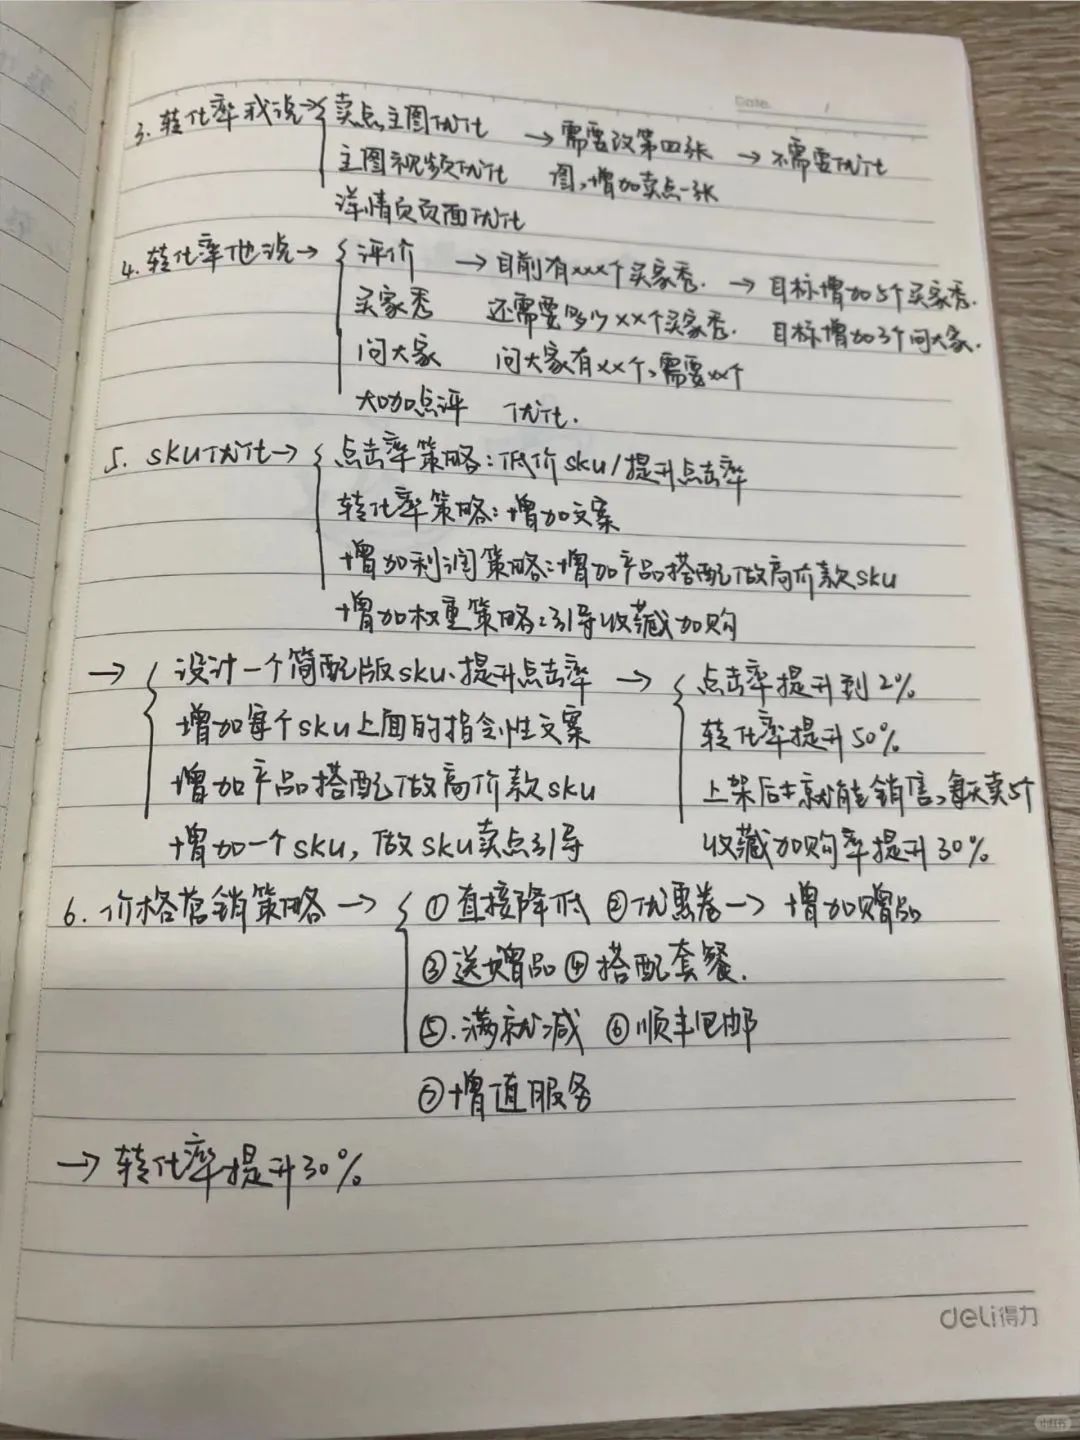 Date. /
3. 转化率我说→ 卖点主图优化 → 需要改第四张 → 不需要优化
主图视频优化 图,增加卖点一张
详情页页面优化
4. 转化率他说→ 评价 → 目前有xxx个买家秀. → 目标增加5个买家秀.
买家秀 还需要多少xx个买家秀. 目标增加3个问大家.
问大家 问大家有xx个,需要xx个
大咖点评 优化.
5. sku优化→ 点击率策略:低价sku/提升点击率
转化率策略:增加文案
增加利润策略:增加产品搭配做高价款sku
增加权重策略:引导收藏加购
→ 设计一个简配版sku、提升点击率 → 点击率提升到2%
增加每个sku上面的指令性文案 转化率提升50%
增加产品搭配做高价款sku 上架后就能销售,每天卖5个
增加一个sku,做sku卖点引导 收藏加购率提升30%
6. 价格营销策略 → ①直接降低 ②优惠卷→ 增加赠品
③送赠品 ④搭配套餐.
⑤.满就减 ⑥顺丰包邮
⑦增值服务
→ 转化率提升30%
deli得力
小红书